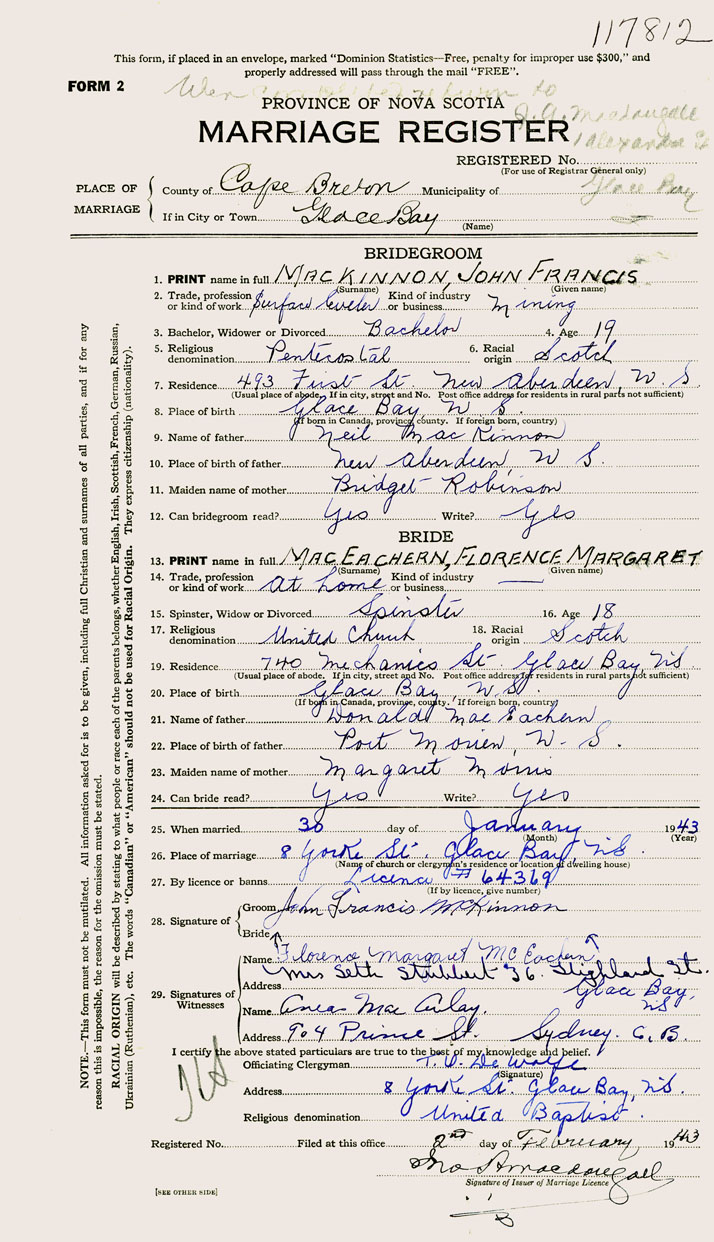 117812
This form, if placed in an envelope, marked "Dominion Statistics—Free, penalty for improper use $300," and
properly addressed will pass through the mail "FREE".
FORM 2
When completed return to
PROVINCE OF NOVA SCOTIA
J. A. MacDougall
MARRIAGE REGISTER
1 Alexandra St
REGISTERED No.
(For use of Registrar General only)
Glace Bay
PLACE OF MARRIAGE
County of Cape Breton Municipality of
If in City or Town Glace Bay
(Name)
BRIDEGROOM
1. PRINT name in full MACKINNON, JOHN FRANCIS
(Surname) (Given name)
2. Trade, profession or kind of work Surface Leveler Kind of industry or business Mining
3. Bachelor, Widower or Divorced Bachelor 4. Age 19
5. Religious denomination Pentecostal 6. Racial origin Scotch
7. Residence 493 First St. New Aberdeen, N. S.
(Usual place of abode. If in city, street and No. Post office address for residents in rural parts not sufficient)
8. Place of birth Glace Bay, N. S.
(If born in Canada, province, county. If foreign born, country)
9. Name of father Neil MacKinnon
10. Place of birth of father New Aberdeen, N. S.
11. Maiden name of mother Bridget Robinson
12. Can bridegroom read? Yes Write? Yes
BRIDE
13. PRINT name in full MACEACHERN, FLORENCE MARGARET
(Surname) (Given name)
14. Trade, profession or kind of work At home Kind of industry or business —
15. Spinster, Widow or Divorced Spinster 16. Age 18
17. Religious denomination United Church 18. Racial origin Scotch
19. Residence 740 Mechanics St. Glace Bay, NS
(Usual place of abode. If in city, street and No. Post office address for residents in rural parts not sufficient)
20. Place of birth Glace Bay, N.S.
(If born in Canada, province, county. If foreign born, country)
21. Name of father Donald MacEachern
22. Place of birth of father Port Morien, N. S.
23. Maiden name of mother Margaret Morris
24. Can bride read? Yes Write? Yes
25. When married 30 day of January 1943
(Month) (Year)
26. Place of marriage 8 Yorke St. Glace Bay NS
(Name of church or clergyman's residence or location of dwelling house)
27. By licence or banns Licence # 64369
(If by licence, give number)
28. Signature of
Groom John Francis McKinnon
Bride
Florence Margaret McEachern
29. Signatures of Witnesses
Name Mrs Seth Stubbert 36. Highland St.
Address Glace Bay, NS
Name Angus MacAulay.
Address 704 Prince St. Sydney. C. B.
I certify the above stated particulars are true to the best of my knowledge and belief.
Officiating Clergyman T. W. DeWolfe
(Signature)
Address 8 Yorke St. Glace Bay, NS.
Religious denomination United Baptist.
Registered No. Filed at this office 2nd day of February 1943
Jno A Macdougall
Signature of Issuer of Marriage Licence
[SEE OTHER SIDE]
NOTE.—This form must not be mutilated. All information asked for is to be given, including full Christian and surnames of all parties, and if for any
reason this is impossible, the reason for the omission must be stated.
RACIAL ORIGIN will be described by stating to what people or race each of the parents belongs, whether English, Irish, Scottish, French, German, Russian,
Ukrainian (Ruthenian), etc. The words "Canadian" or "American" should not be used for Racial Origin. They express citizenship (nationality).